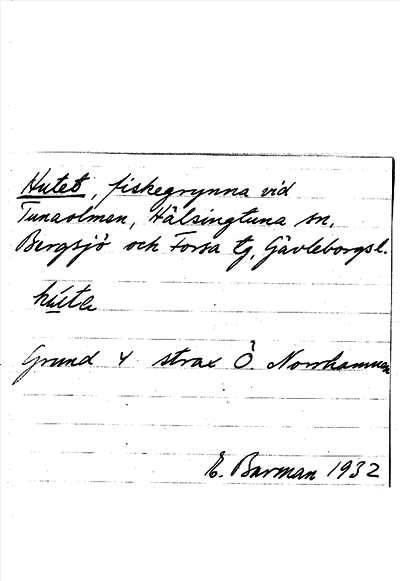 Hutet, fiskegrynna vid
Tunaolmen, Hälsingtuna sn,
Bergsjö och Forsa tg, Gävleborgs l.
Grund 4 strax Ö. Norrhamnen
E. Barman 1932